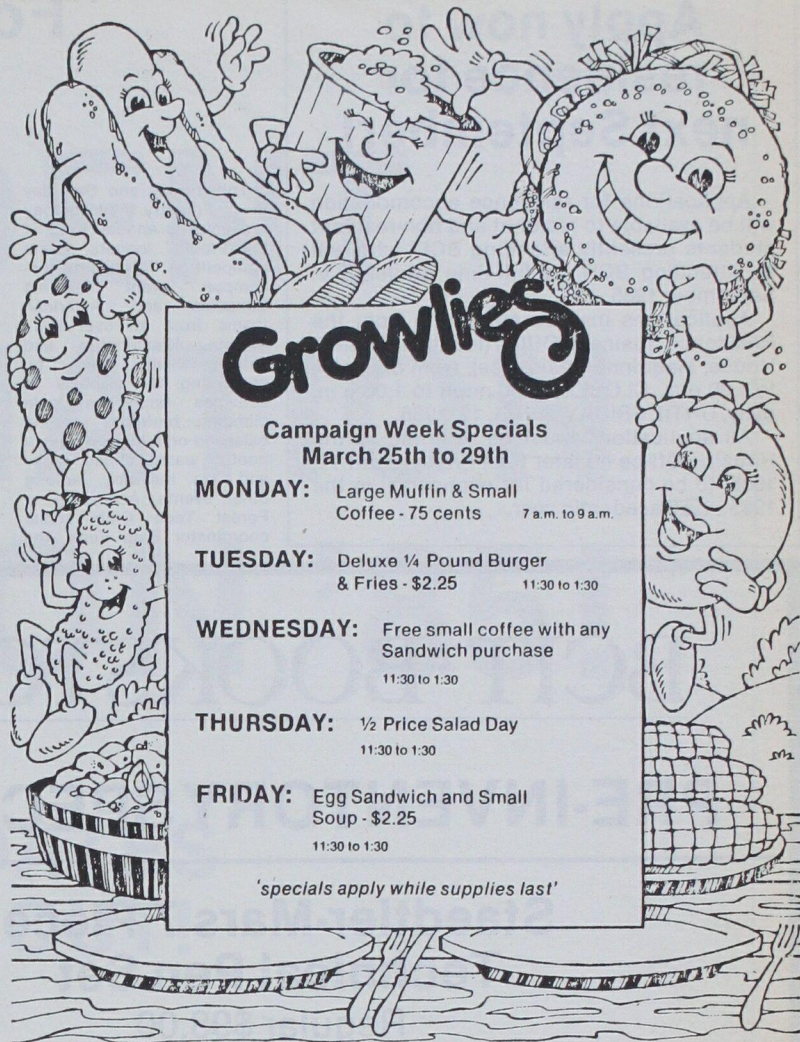 Growlies
Campaign Week Specials
March 25th to 29th
MONDAY: Large Muffin & Small
Coffee - 75 cents 7 a.m. to 9 a.m.
TUESDAY: Deluxe ¼ Pound Burger
& Fries - $2.25 11:30 to 1:30
WEDNESDAY: Free small coffee with any
Sandwich purchase
11:30 to 1:30
THURSDAY: ½ Price Salad Day
11:30 to 1:30
FRIDAY: Egg Sandwich and Small
Soup - $2.25
11:30 to 1:30
'specials apply while supplies last'